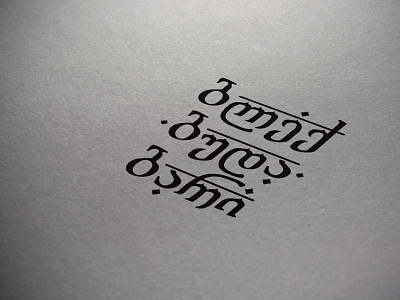 ბლექ
ბუდა
ბარი